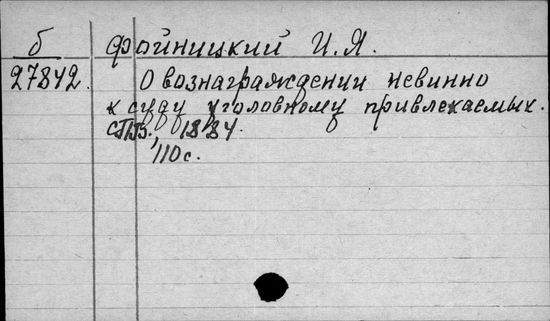 б фойницкий И.Я.
27842. О вознаграждении невинно
к суду уголовному привлекаемых.
СПБ. 1884.
110с.